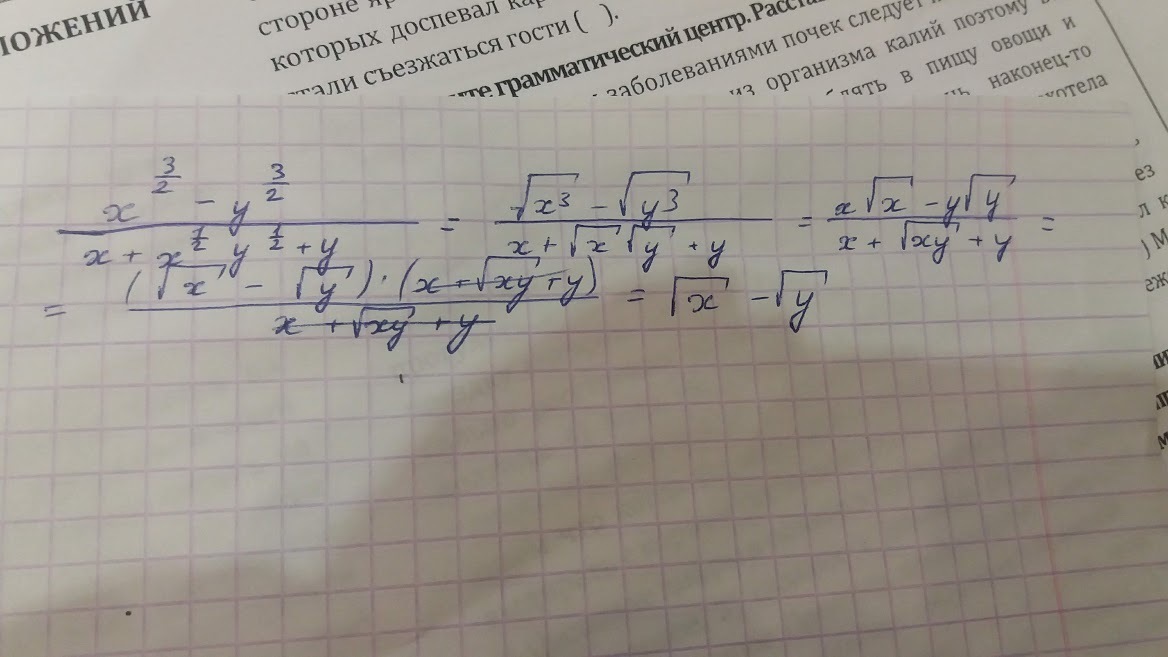 ЛОЖЕНИЙ
стороне
которых доспевал
стали съезжаться гости ( ).
грамматический центр.
заболеваниями почек следует
из организма калий поэтому
в пищу овощи и
наконец-то
x^(3/2) - y^(3/2) / x + x^(1/2) y^(1/2) + y = √x³ - √y³ / x + √x √y + y = x√x - y√y / x + √xy + y =
= (√x - √y) · (x + √xy + y) / x + √xy + y = √x - √y